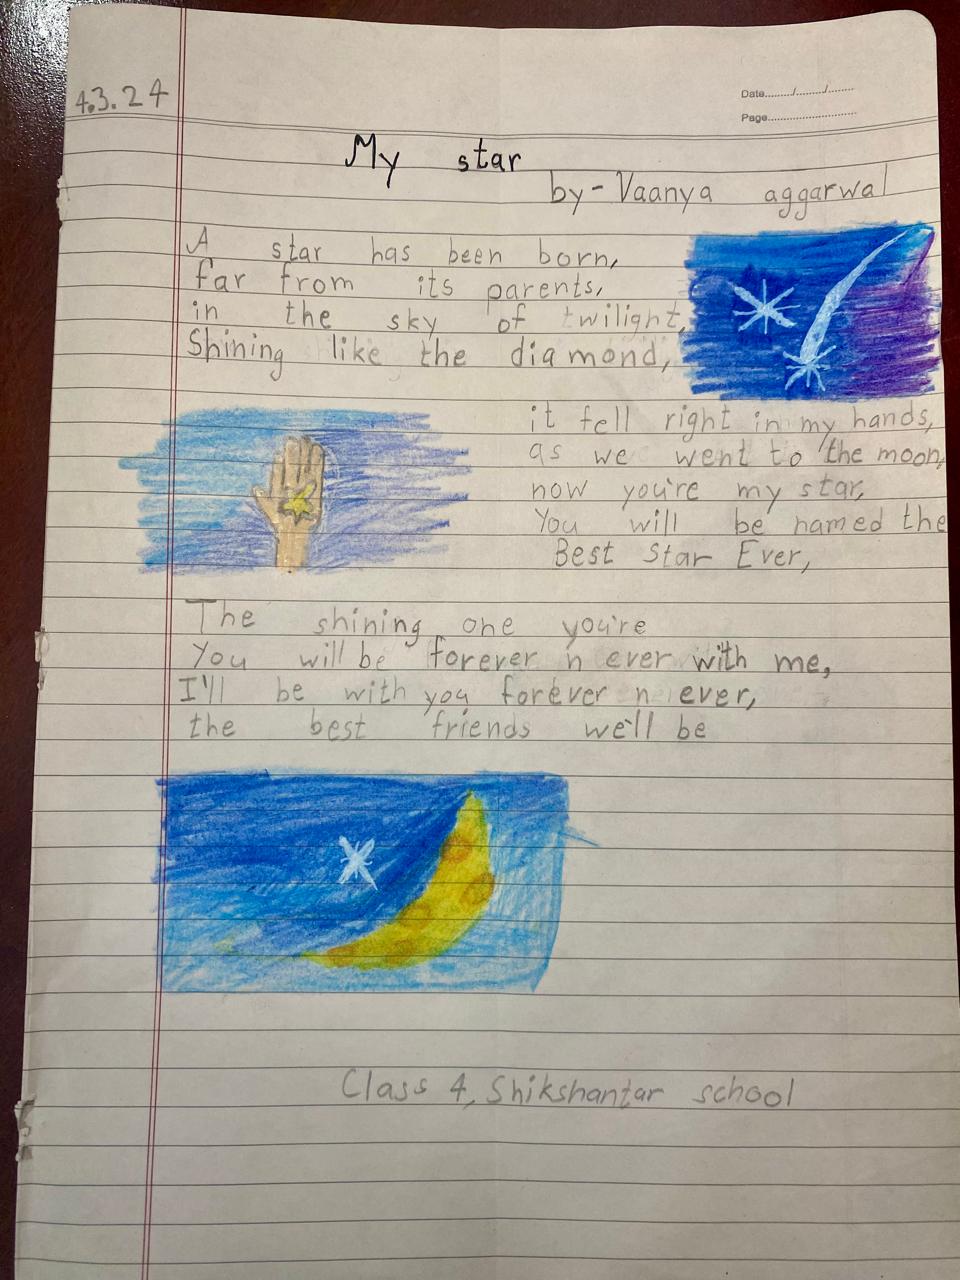 4.3.24
Date......../......../........
Page............................
My star
by- Vaanya aggarwal
A star has been born,
far from its parents,
in the sky of twilight,
Shining like the diamond,
it fell right in my hands,
as we went to the moon,
now you're my star,
You will be named the
Best Star Ever,
The shining one you're
You will be forever n ever with me,
I'll be with you forever n ever,
the best friends we'll be
Class 4, Shikshantar school